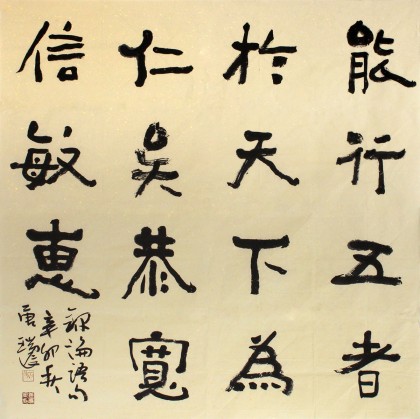 能行五者
於天下為
仁矣恭寬
信敏惠
錄論語句
辛卯